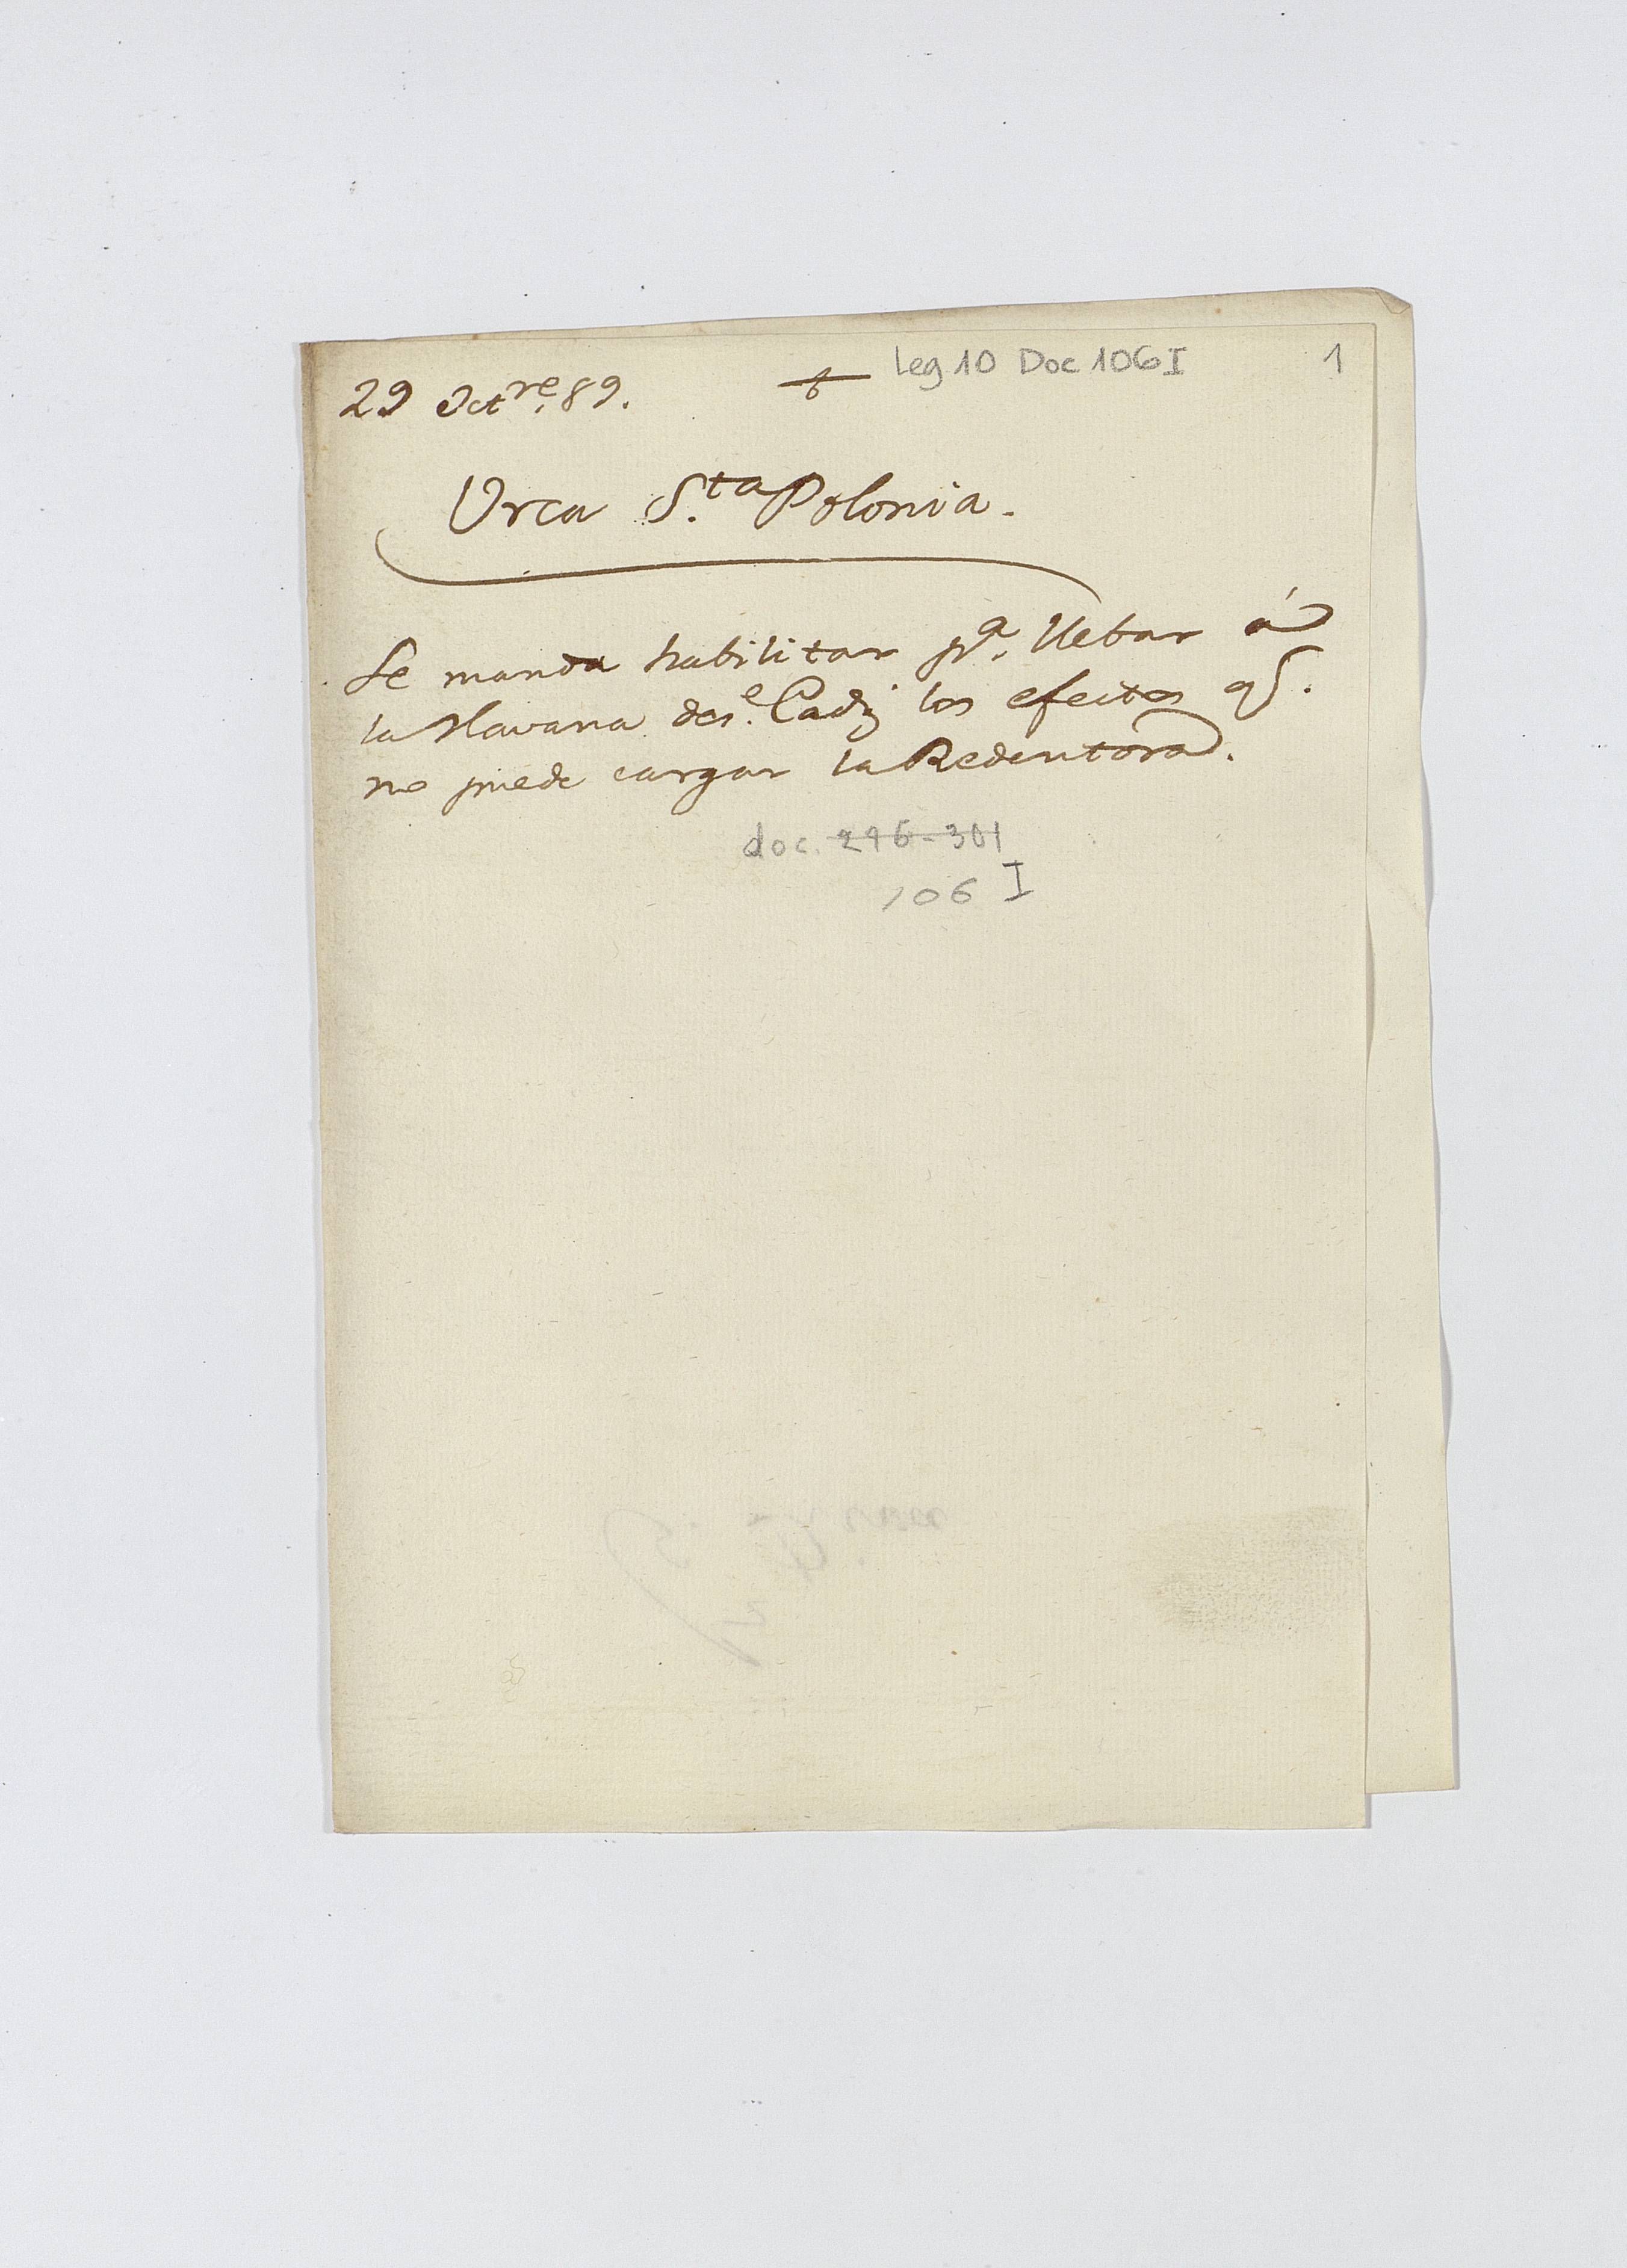 leg 10 Doc 106 I 1
29 Oct.re 89.
Urca S.ta Polonia.
Se manda habilitar p.a llebar á
la Havana des.e Cadiz los efectos q.e
no puede cargar la Redentora.
doc. 296-301
106 I